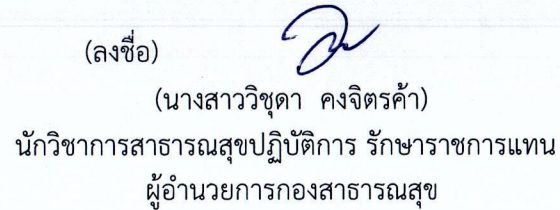 (ลงชื่อ)
(นางสาววิชุดา คงจิตรค้า)
นักวิชาการสาธารณสุขปฏิบัติการ รักษาราชการแทน
ผู้อำนวยการกองสาธารณสุข